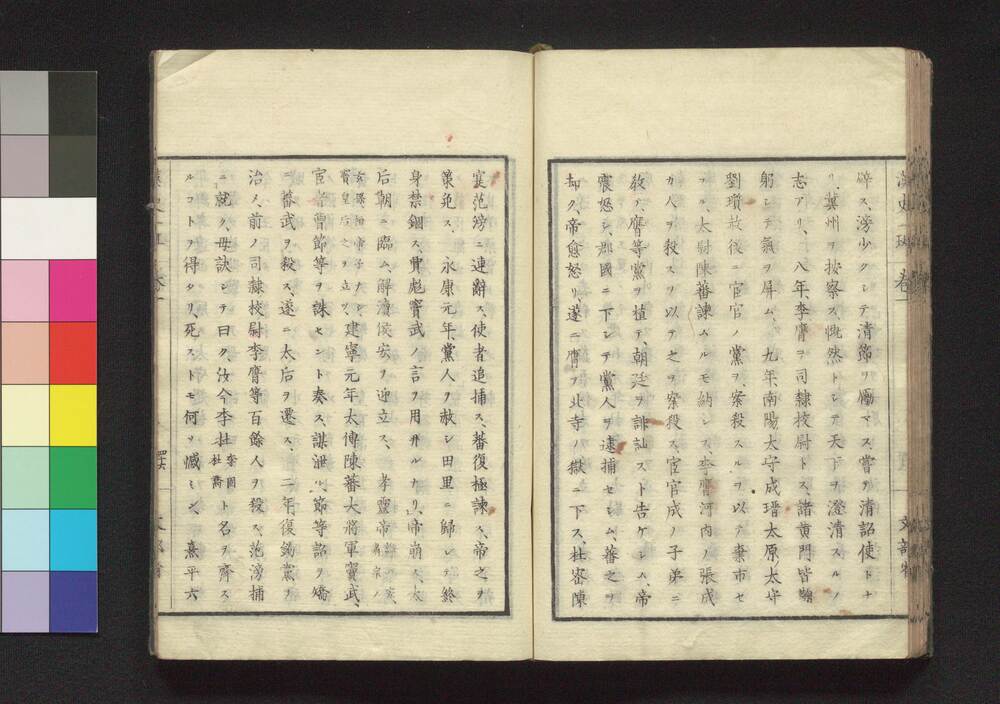 辟ス、滂少クシテ清節ヲ厲マス嘗ヲ清詔使トナ
リ、冀州ヲ按察ス、慨然トシテ天下ヲ澄清スルノ
志アリ、八年、李膺ヲ司隸校尉トス、諸黄門皆鞠
躬シテ氣ヲ屏ム、九年、南陽太守成瑨太原ノ太守
劉瓆赦後ニ宦官ノ黨ヲ案殺スルヲ以テ棄市セ
ラル、太尉陳蕃諫ムルモ納レス、李膺河内ノ張成
カ人ヲ殺スヲ以テ之ヲ案殺ス、宦官成ノ子弟ニ
敎ヘ、膺等黨ヲ植テ、朝廷ヲ誹訕スト告ケシム、帝
震怒シ、郡國ニ下シテ黨人ヲ逮捕セシム、蕃之ヲ
却ク、帝愈怒リ、遂ニ膺ヲ北寺ノ獄ニ下ス、杜密陳
寔范滂ニ連辭ス、使者追捕ス、蕃復極諫ス、帝之ヲ
策免ス、永康元年、黨人ヲ赦シ田里ニ歸シテ終
身禁錮ス、賈彪竇武ノ言ヲ用井ルナリ、帝崩ス、太
后朝ニ臨ム、解瀆侯安ヲ迎立ス、孝靈帝
竇皇后之ヲ立ツ、建寧元年太傅陳蕃大將軍竇武、
宦者曹節等ヲ誅セント奏ス、謀泄ル節等詔ヲ矯
テ蕃武ヲ殺ス、遂ニ太后ヲ遷ス、二年復鉤黨ヲ
治メ、前ノ司隸校尉李膺等百餘人ヲ殺ス、范滂捕
ニ就ク、母訣シテ曰ク、汝今李杜李固杜喬ト名ヲ齊ス
ルコトヲ得タリ、死ストモ何ヲ憾ミン、熹平六